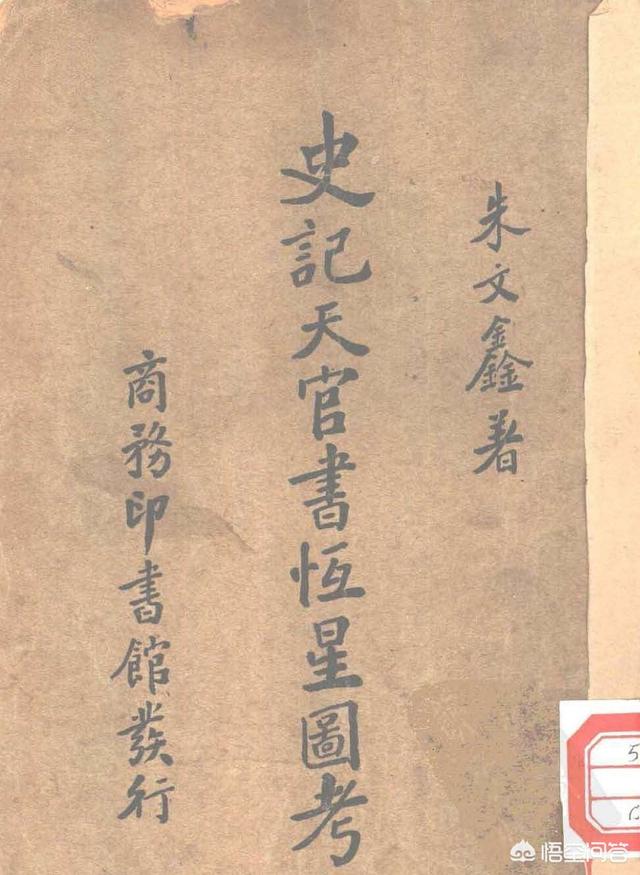 朱文鑫著
史記天官書恆星圖考
商務印書館發行
5
悟空问答